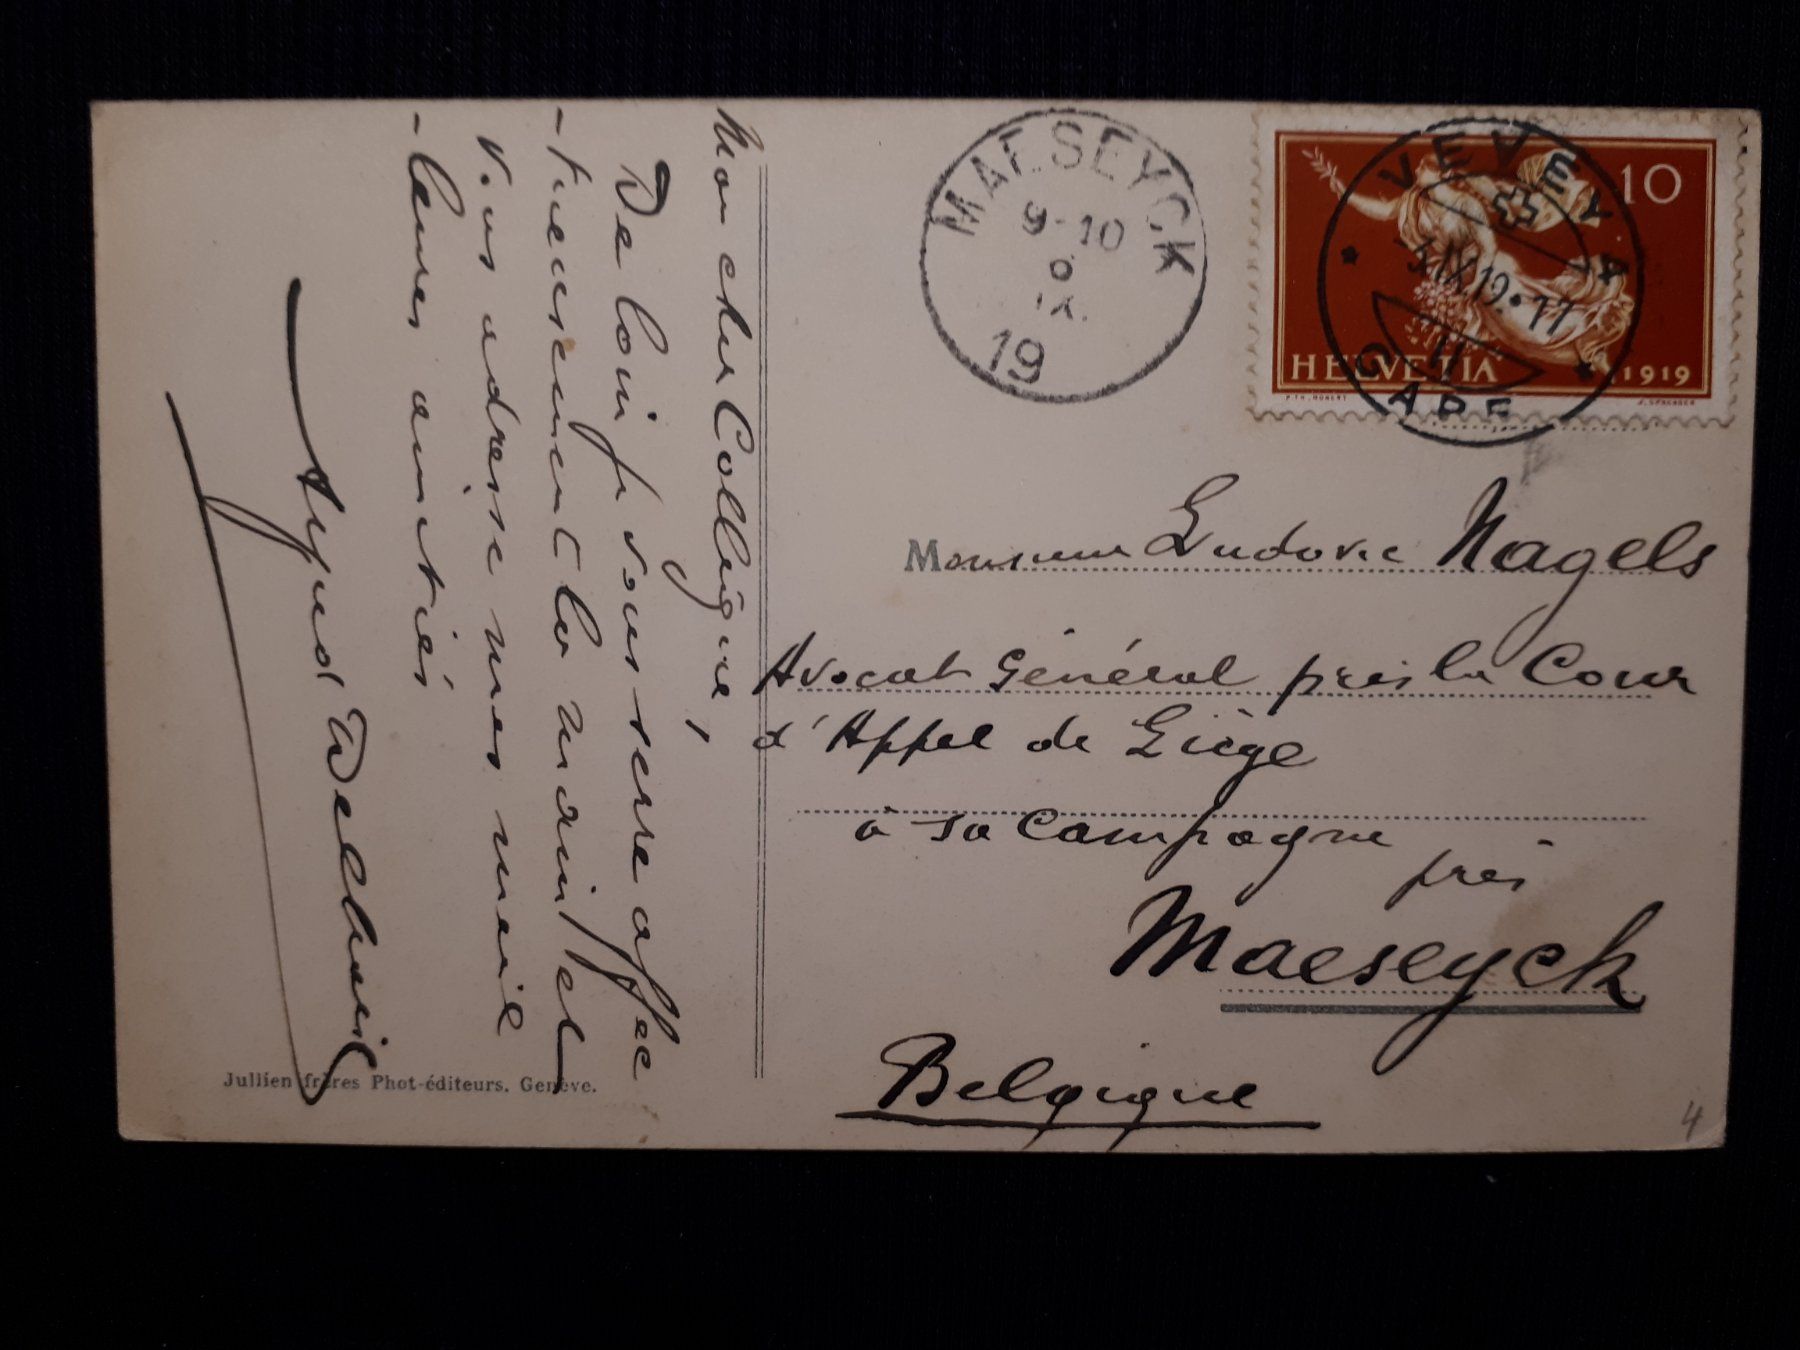 Mon cher Collègue,
De loin je vous serre affec
-tueusement la main et
vous adresse mes meil
-leures amitiés
Delhaise
Jullien frères Phot-éditeurs. Genève.
MAESEYCK
9-10
IX.
19
10
HELVETIA
1919
VEVEY
IX 19·17
Monsieur Ludovic Nagels
Avocat Général près la Cour
d'Appel de Liège
à sa Campagne
près
Maeseyck
Belgique
4